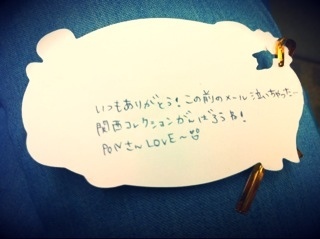 いつもありがとう！この前のメール泣いちゃった…
関西コレクションがんばろうね！
PONさ〜LOVE〜